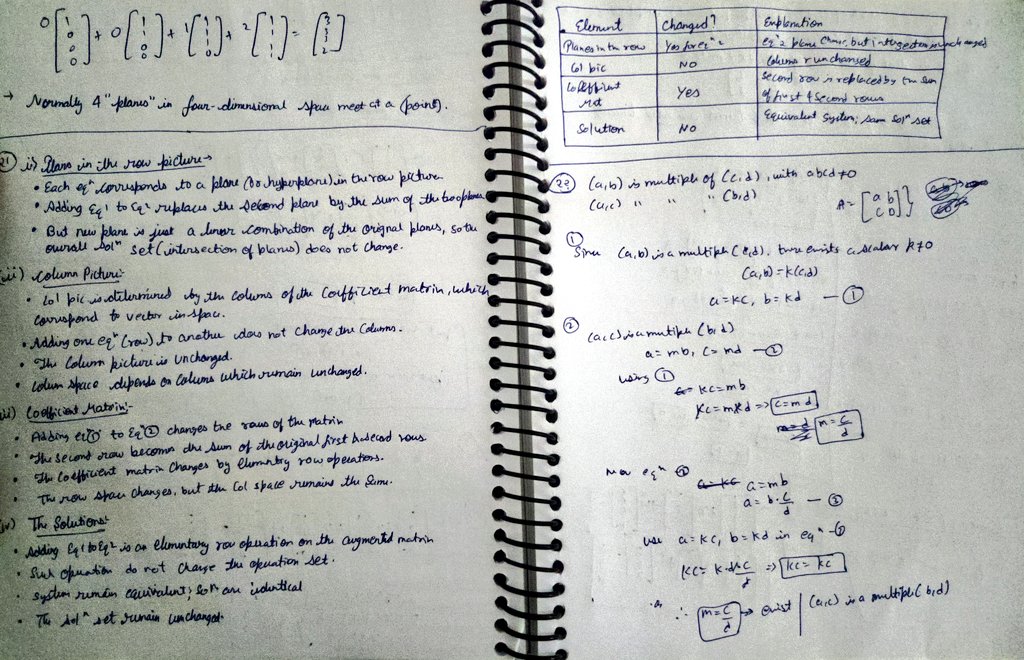 0 [1 0 0 0] + 0 [1 1 0 0] + 1 [1 1 1 0] + 2 [1 1 1 1] = [3 3 3 2]
→ Normally 4 "planes" in four-dimensional space meet at a (point).
21 i) Plans in the row picture→
• Each eqⁿ corresponds to a plane (or hyperplane) in the row picture.
• Adding Eq 1 to Eq 2 replaces the second plane by the sum of the two planes
• But new plane is just a linear combination of the original planes, so the
overall solⁿ set (intersection of planes) does not change.
ii) Column Picture:-
• Col pic is determined by the colums of the Coefficient matrix, which
correspond to vector in space.
• Adding one eqⁿ (row) to another does not change the Columns.
• The Column picture is unchanged.
• Column space depends on Columns which remain unchanged.
iii) Coefficient Matrix:-
• Adding eq① to Eq② changes the rows of the matrix
• The second row becomes the sum of the original first & second rows.
• The Coefficient matrix changes by elementry row operations.
• The row space changes, but the Col space remains the same.
iv) The Solutions:-
• Adding Eq 1 to Eq 2 is an elementary row operation on the augmented matrix
• Such operation do not change the equation set.
• System remain equivalent; Solⁿ are identical
• The solⁿ set remain unchanged.
Element | Changed? | Explanation
Planes in the row | Yes for eqⁿ 2 | eqⁿ 2 plane change, but intersection unchanged
Col pic | NO | Columns r unchanged
Coefficient Mat | Yes | Second row is replaced by the sum of first & second rows
Solution | NO | Equivalent System; same solⁿ set
22 (a,b) is multiple of (c,d), with abcd≠0
(a,c) " " " (b,d)
A = [a b
C D]
① Since (a,b) is a multiple (c,d), there exists a scalar k≠0
(a,b) = k(c,d)
a = kc, b = kd — ①
② (a,c) is a mutiple (b,d)
a = mb, c = md —②
using ①
kc = mb
kc = mkd => c = md
m = c/d
Now eqⁿ ②
a = mb
a = b·c/d — ③
use a = kc, b = kd in eqⁿ -③
kc = k·d×c/d => kc = kc
∴ m = c/d → exist | (a,c) is a multiple (b,d)